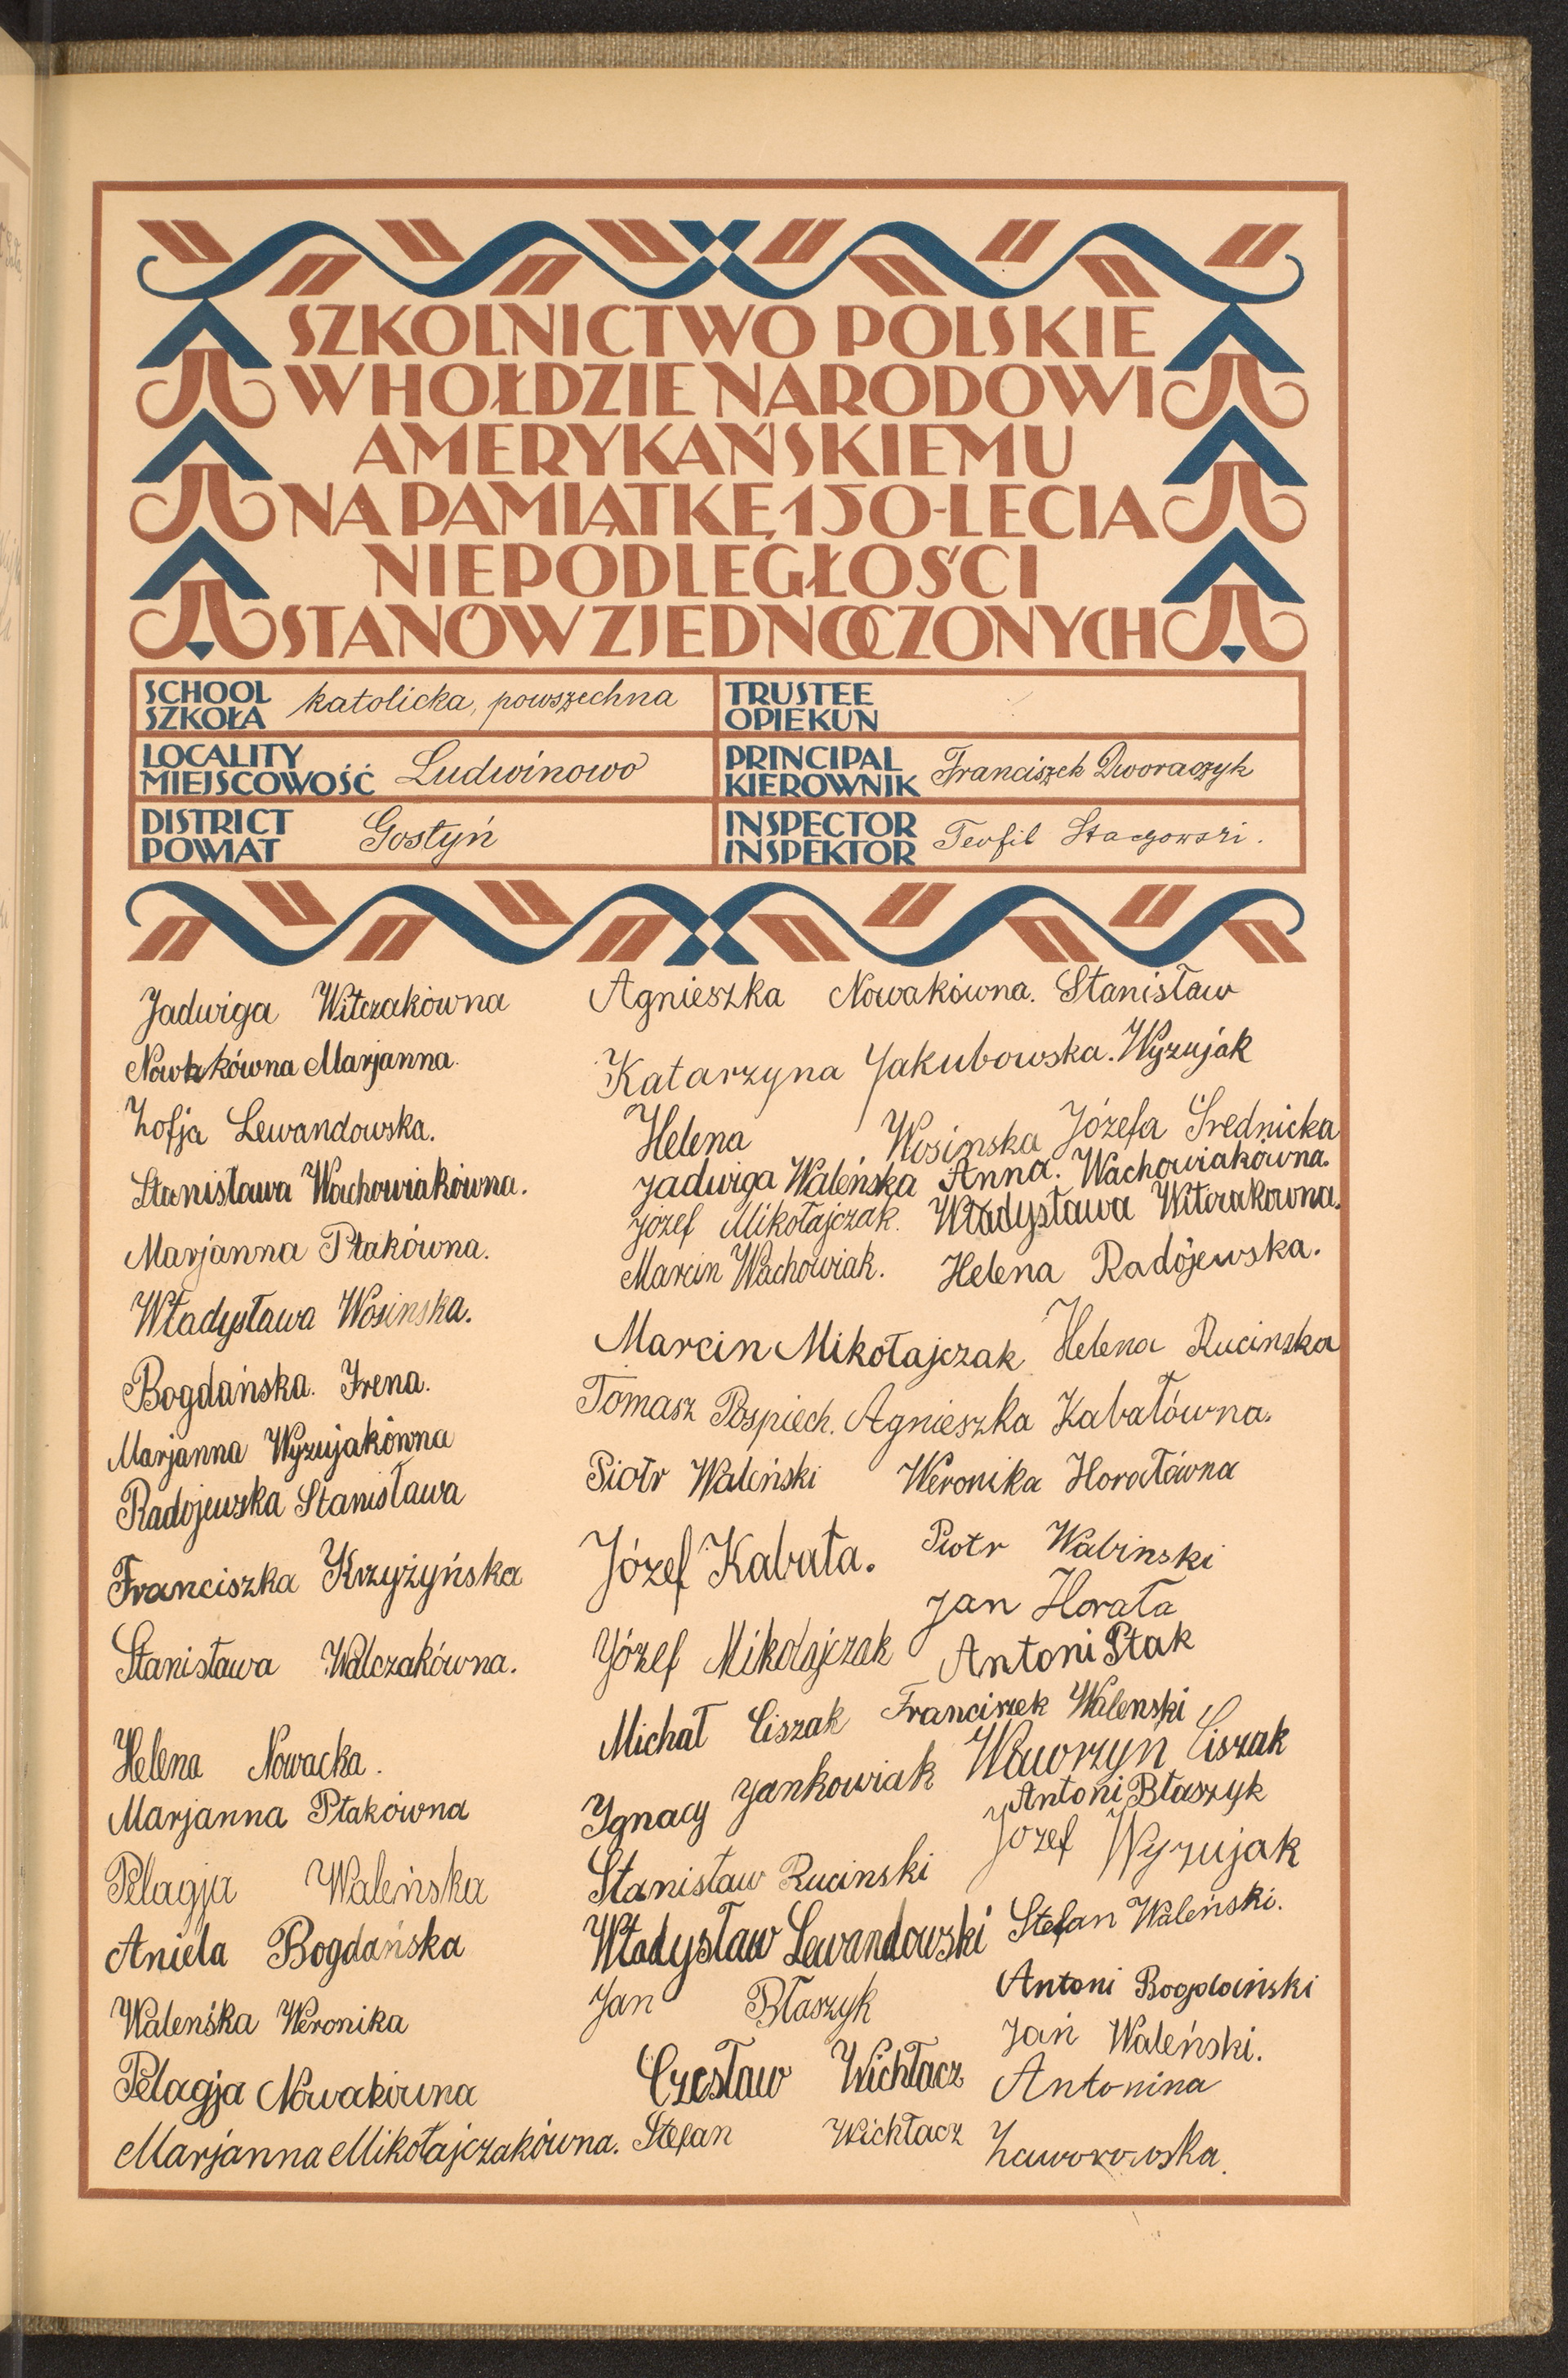 SZKOLNICTWO POLSKIE
W HOŁDZIE NARODOWI
AMERYKAŃSKIEMU
NA PAMIĄTKĘ 150-LECIA
NIEPODLEGŁOŚCI
STANÓW ZJEDNOCZONYCH
SCHOOL
SZKOŁA
katolicka, powszechna
TRUSTEE
OPIEKUN
LOCALITY
MIEJSCOWOŚĆ
Ludwinowo
PRINCIPAL
KIEROWNIK
Franciszek Dworaczyk
DISTRICT
POWIAT
Gostyń
INSPECTOR
INSPEKTOR
Teofil
Jadwiga Witczakówna
Nowakówna Marjanna.
Zofja Lewandowska.
Stanisława Wachowiakówna.
Marjanna Ptakówna.
Władysława Wosinska.
Bogdańska. Irena.
Marjanna Wyzujakówna
Radojewska Stanisława
Franciszka Krzyżyńska
Stanisława Walczakówna.
Helena Nowacka.
Marjanna Ptakówna
Pelagja Waleńska
Aniela Bogdańska
Waleńska Weronika
Pelagja Nowakówna
Marjanna Mikołajczakówna.
Agnieszka Nowakówna.
Katarzyna Jakubowska.
Helena Wosinska
Jadwiga Waleńska
Józef Mikołajczak.
Marcin Wachowiak.
Marcin Mikołajczak
Tomasz Pospiech.
Piotr Waleński
Józef Kabała.
Józef Mikołajczak
Michał Ciszak
Ygnacy Jankowiak
Stanisław Rucinski
Władysław Lewandowski
Jan Błaszyk
Czesław Wichłacz
Stefan Wichłacz
Stanisław
Wyzujak
Józefa Średnicka
Anna. Wachowiakówna.
Władysława Witczakowna.
Helena Radojewska.
Helena Rucinska
Agnieszka Kabałówna.
Weronika Horałówna
Piotr Wabinski
Jan Horała
Antoni Ptak
Franciszek Walenski
Wawrzyn Ciszak
Antoni Błaszyk
Józef Wyzujak
Stefan Waleński.
Antoni Bogdański
Jan Waleński.
Antonina
Zaworowska.